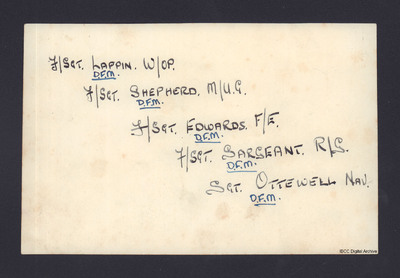 F/Sgt. Lappin. W/OP.
D.F.M.
F/Sgt. Shepherd. M/U.G.
D.F.M.
F/Sgt. Edwards. F/E.
D.F.M.
F/Sgt. Sargeant. R/G.
D.F.M.
Sgt. Ottewell Nav.
D.F.M.
IBCC Digital Archive